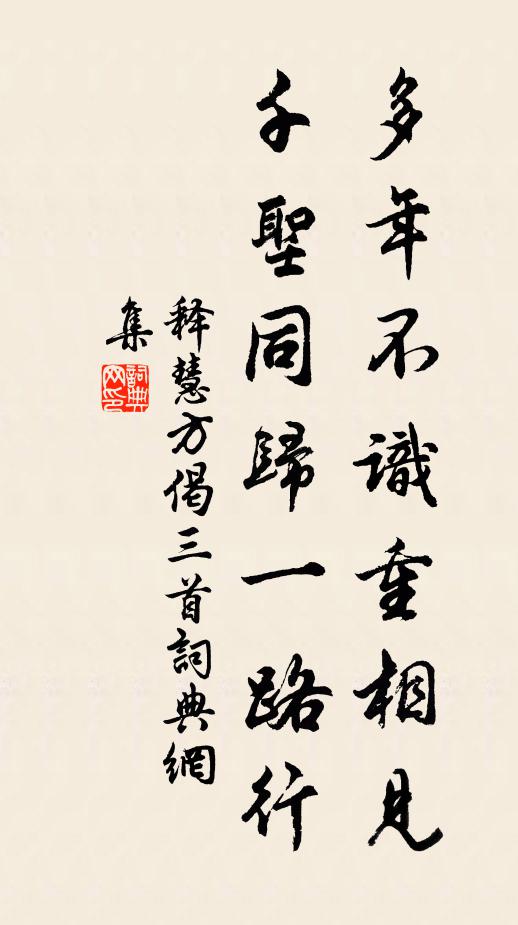 多年不識重相見
千聖同歸一路行
释慧方偈三首詞典網
集
詞典
网印